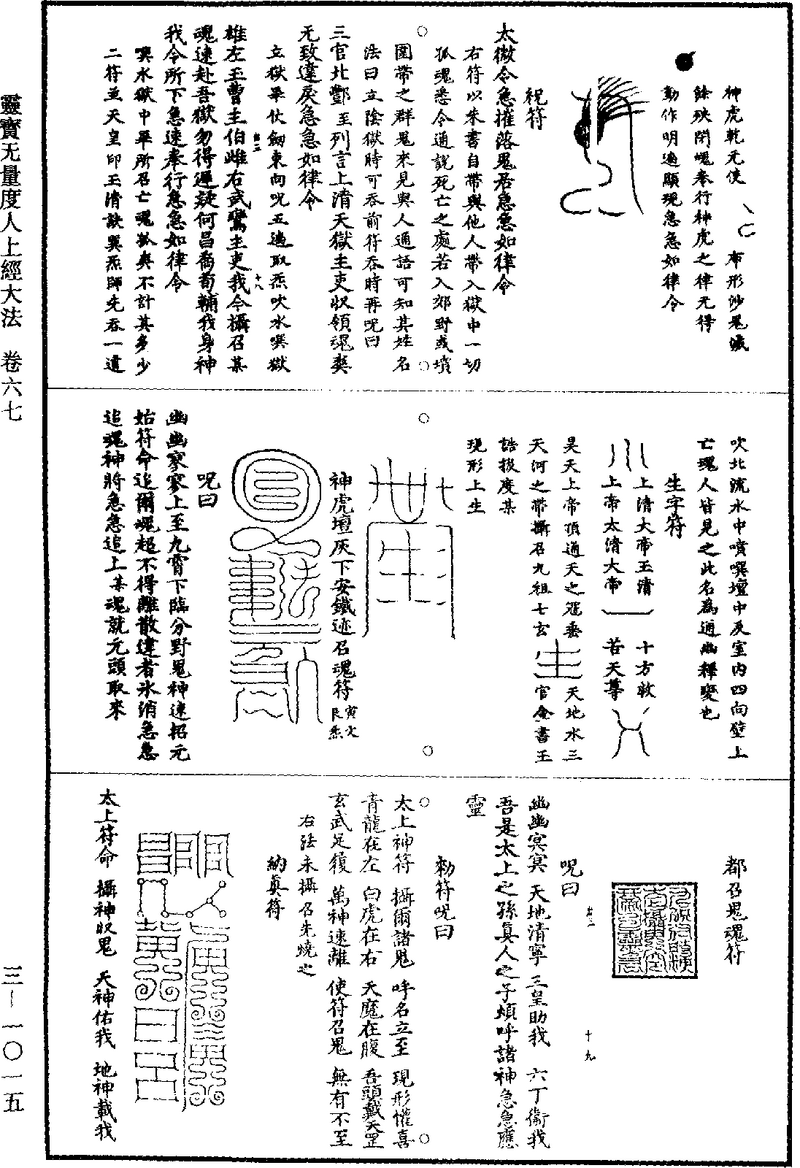 神虎乾元使 布形沙鬼滅
餘殃閉魄奉行神虎之律无得
動作明通顯現急急如律令
祝符
太微令急摧落鬼君急急如律令
右符以朱書自帶與他人帶入獄中一切
狐魂悉令通說死亡之處若入郊野或墳
園帶之群鬼來見與人通話可知其姓名
法曰立陰獄時可吞前符吞時再呪曰
三官北酆至列言上清天獄主吏收領魂爽
无致違戾急急如律令
立獄畢仗劒東向呪五遍取炁吹水噀獄
雄左王曹主伯雌右武鸞主吏我今攝召某
魂速赴吾獄勿得遲疑何昌喬荀輔我身神
我令所下急速奉行急急如律令
噀水獄中畢所召亡魂孤爽不計其多少
二符並天皇印玉清訣與炁師先吞一道
吹北流水中噴噀壇中及室內四向壁上
亡魂人皆見之此名為通幽釋變也
生字符
上清大帝玉清 十方救
上帝太清大帝 苦天尊
昊天上帝頂通天之冠垂 天地水三
天河之帶攝召九祖七玄 官金書玉
誥拔度某
現形上生
神虎壇灰下安鐵迹召魂符 寅文
艮炁
呪曰
幽幽寥寥上至九霄下臨分野鬼神速招元
始符命追爾魂超不得離散違者氷消急急
追魂神將急急追上某魂就元頭取來
都召鬼魂符
呪曰
幽幽冥冥 天地清寧 三皇助我 六丁衞我
吾是太上之孫真人之子煩呼諸神急急應
靈
勑符呪曰
太上神符 攝爾諸鬼 呼名立至 現形懽喜
青龍在左 白虎在右 天魔在腹 吾頭戴天罡
玄武足履 萬神速離 使符召鬼 無有不至
右法未攝召先燒之
納真符
太上符命 攝神收鬼 天神佑我 地神載我
靈寶无量度人上經大法 卷六七
三-一〇一五